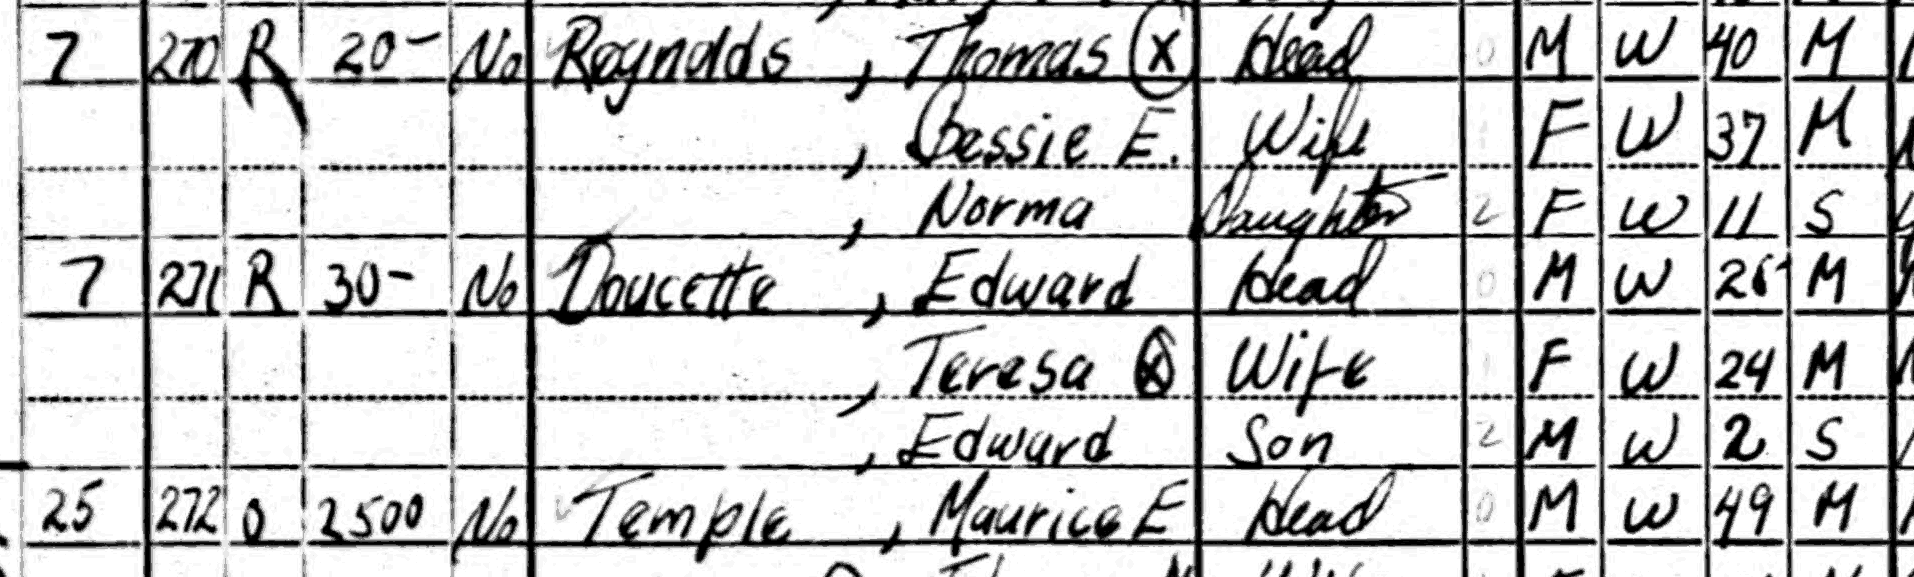 7 270 R 20- No Reynolds, Thomas (X) Head 0 M W 40 M
, Bessie E. Wife 1 F W 37 M
, Norma Daughter 2 F W 11 S
7 271 R 30- No Doucette, Edward Head 0 M W M
, Teresa (X) Wife 1 F W 24 M
, Edward Son 2 M W 2 S
25 272 O 2500 No Temple, Maurice E Head 0 M W 49 M